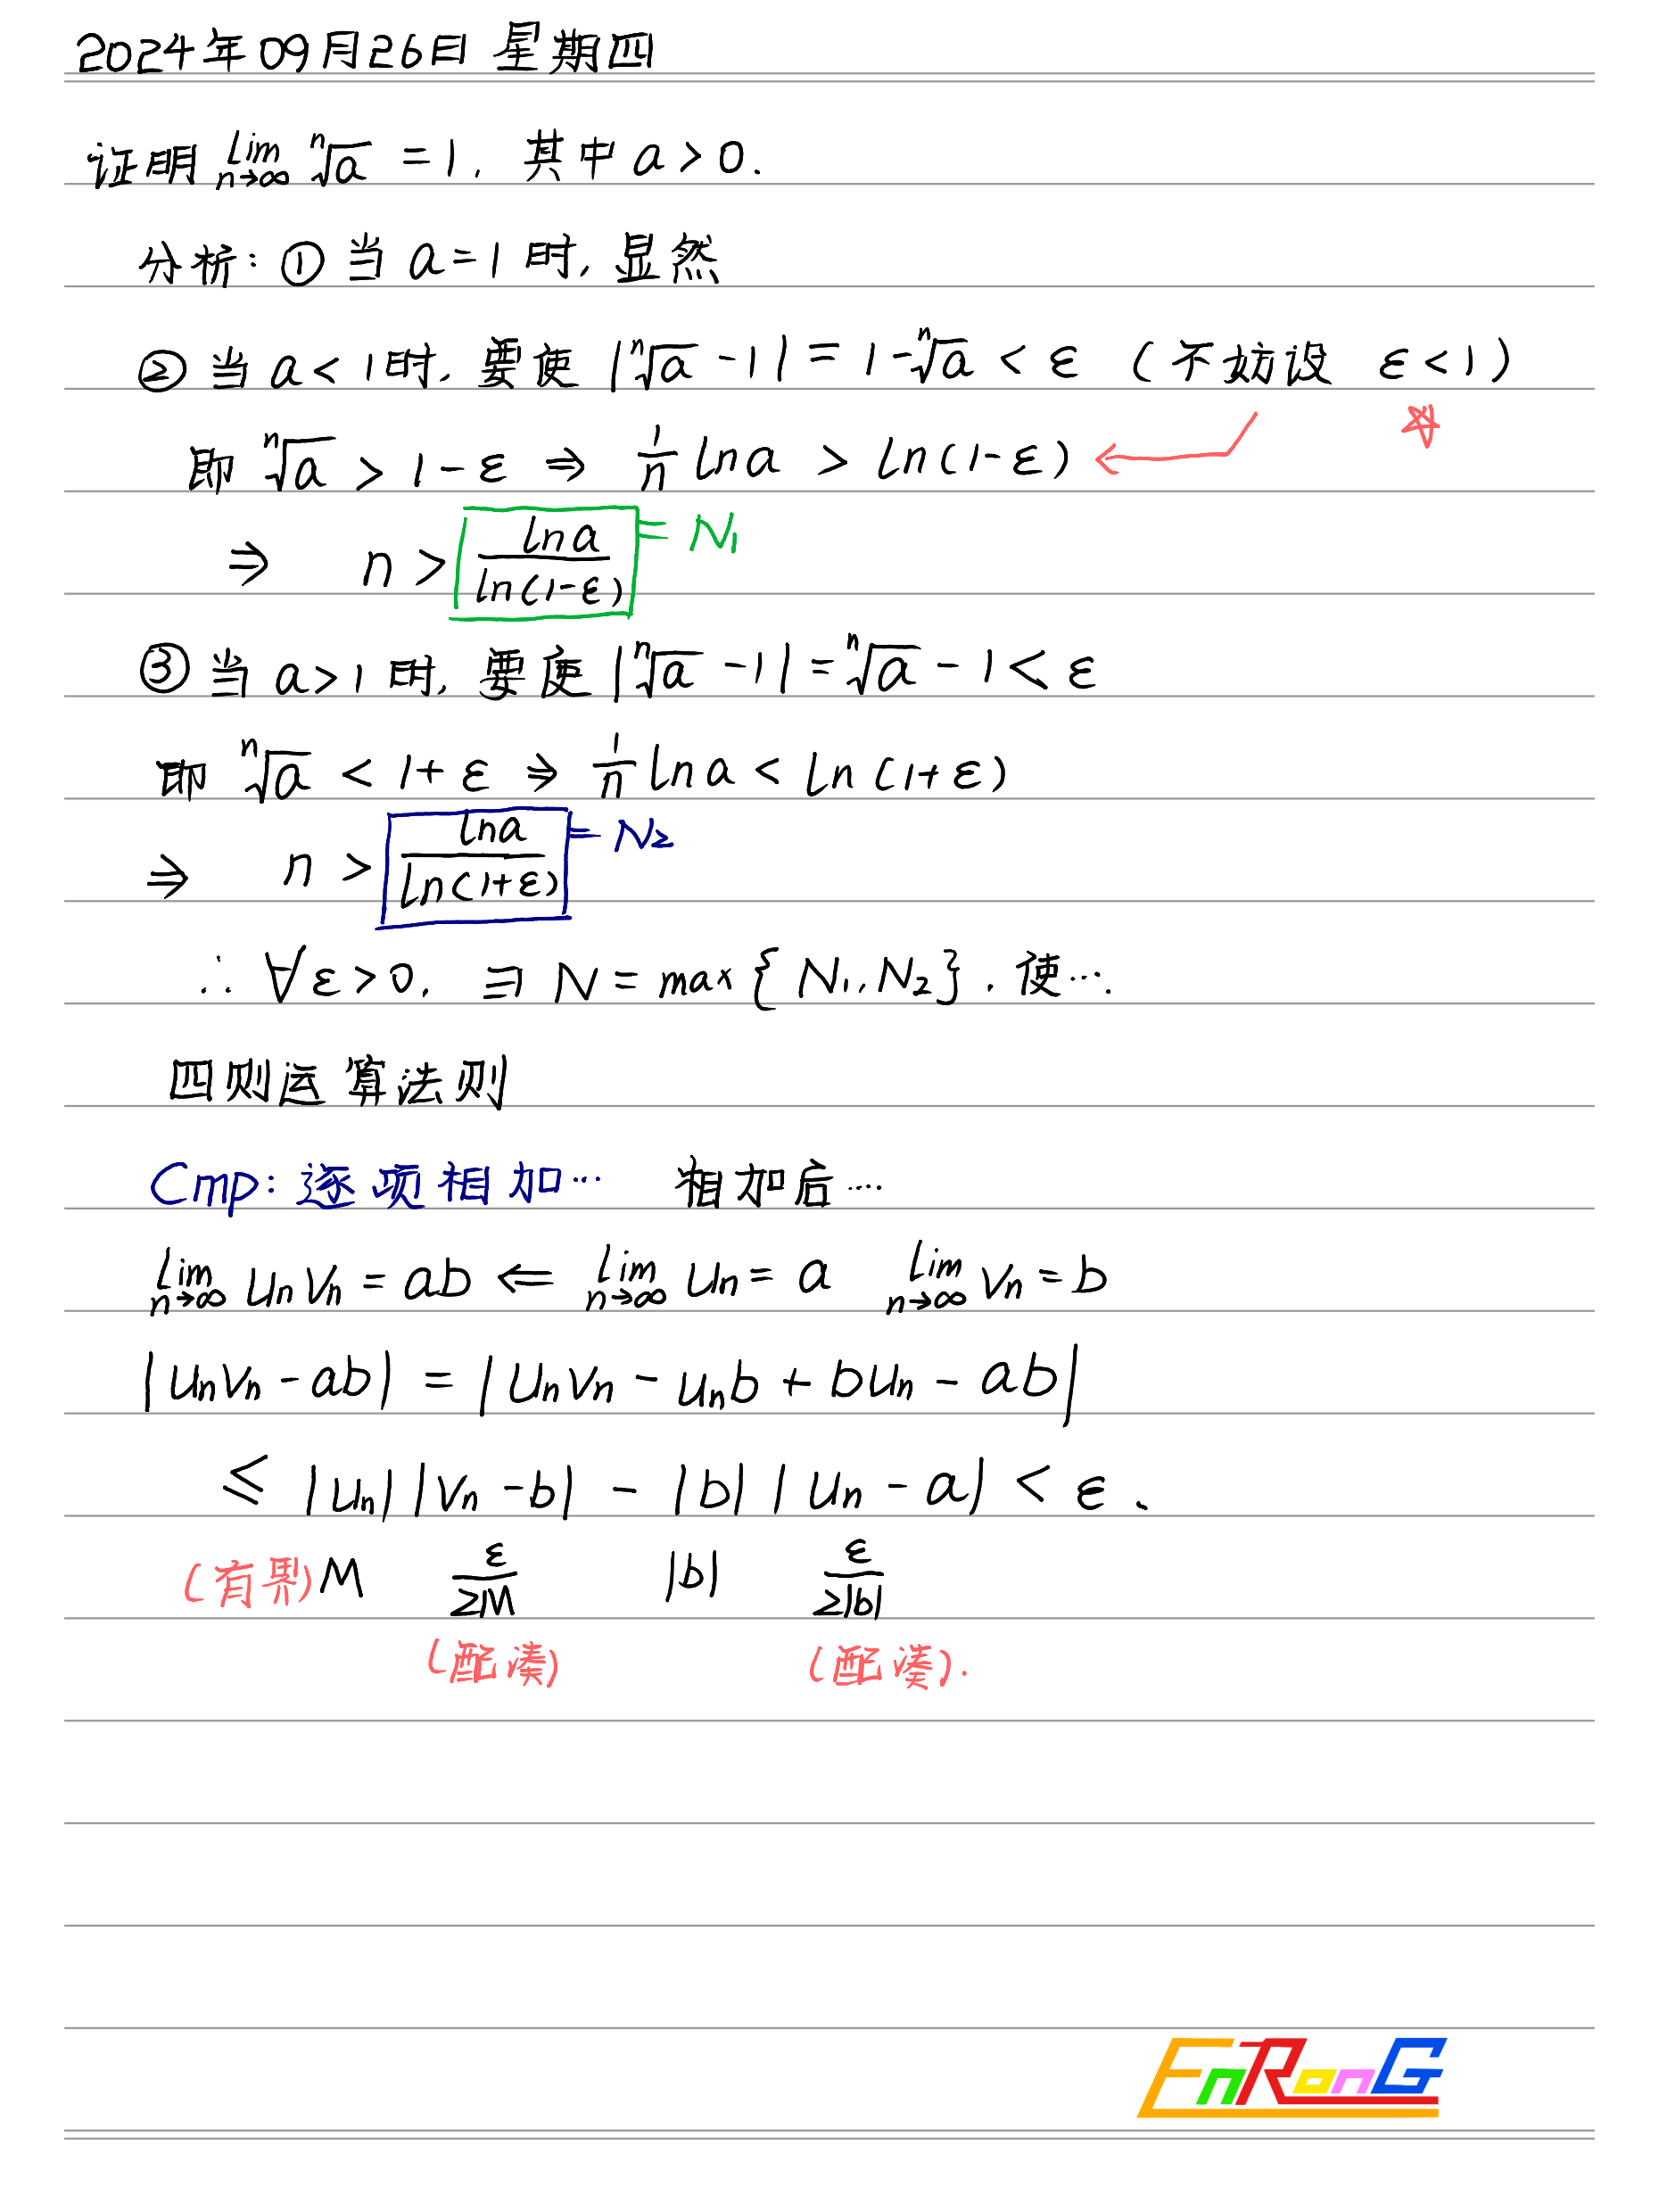 2024年09月26日 星期四
证明 lim n→∞ ⁿ√a = 1, 其中 a > 0.
分析: ① 当 a = 1 时, 显然
② 当 a < 1 时, 要使 |ⁿ√a - 1| = 1 - ⁿ√a < ε (不妨设 ε < 1)
即 ⁿ√a > 1 - ε ⇒ 1/n ln a > ln(1-ε) ← ☆
⇒ n > ln a / ln(1-ε) = N₁
③ 当 a > 1 时, 要使 |ⁿ√a - 1| = ⁿ√a - 1 < ε
即 ⁿ√a < 1 + ε ⇒ 1/n ln a < ln(1+ε)
⇒ n > ln a / ln(1+ε) = N₂
∴ ∀ε > 0, ∃ N = max{N₁, N₂}, 使…
四则运算法则
Cmp: 逐项相加… 相加后…
lim n→∞ uₙvₙ = ab ⇐ lim n→∞ uₙ = a lim n→∞ vₙ = b
|uₙvₙ - ab| = |uₙvₙ - uₙb + buₙ - ab|
≤ |uₙ||vₙ - b| - |b||uₙ - a| < ε.
(有界) M ε/2M |b| ε/2|b|
(配凑) (配凑).
EnRonG